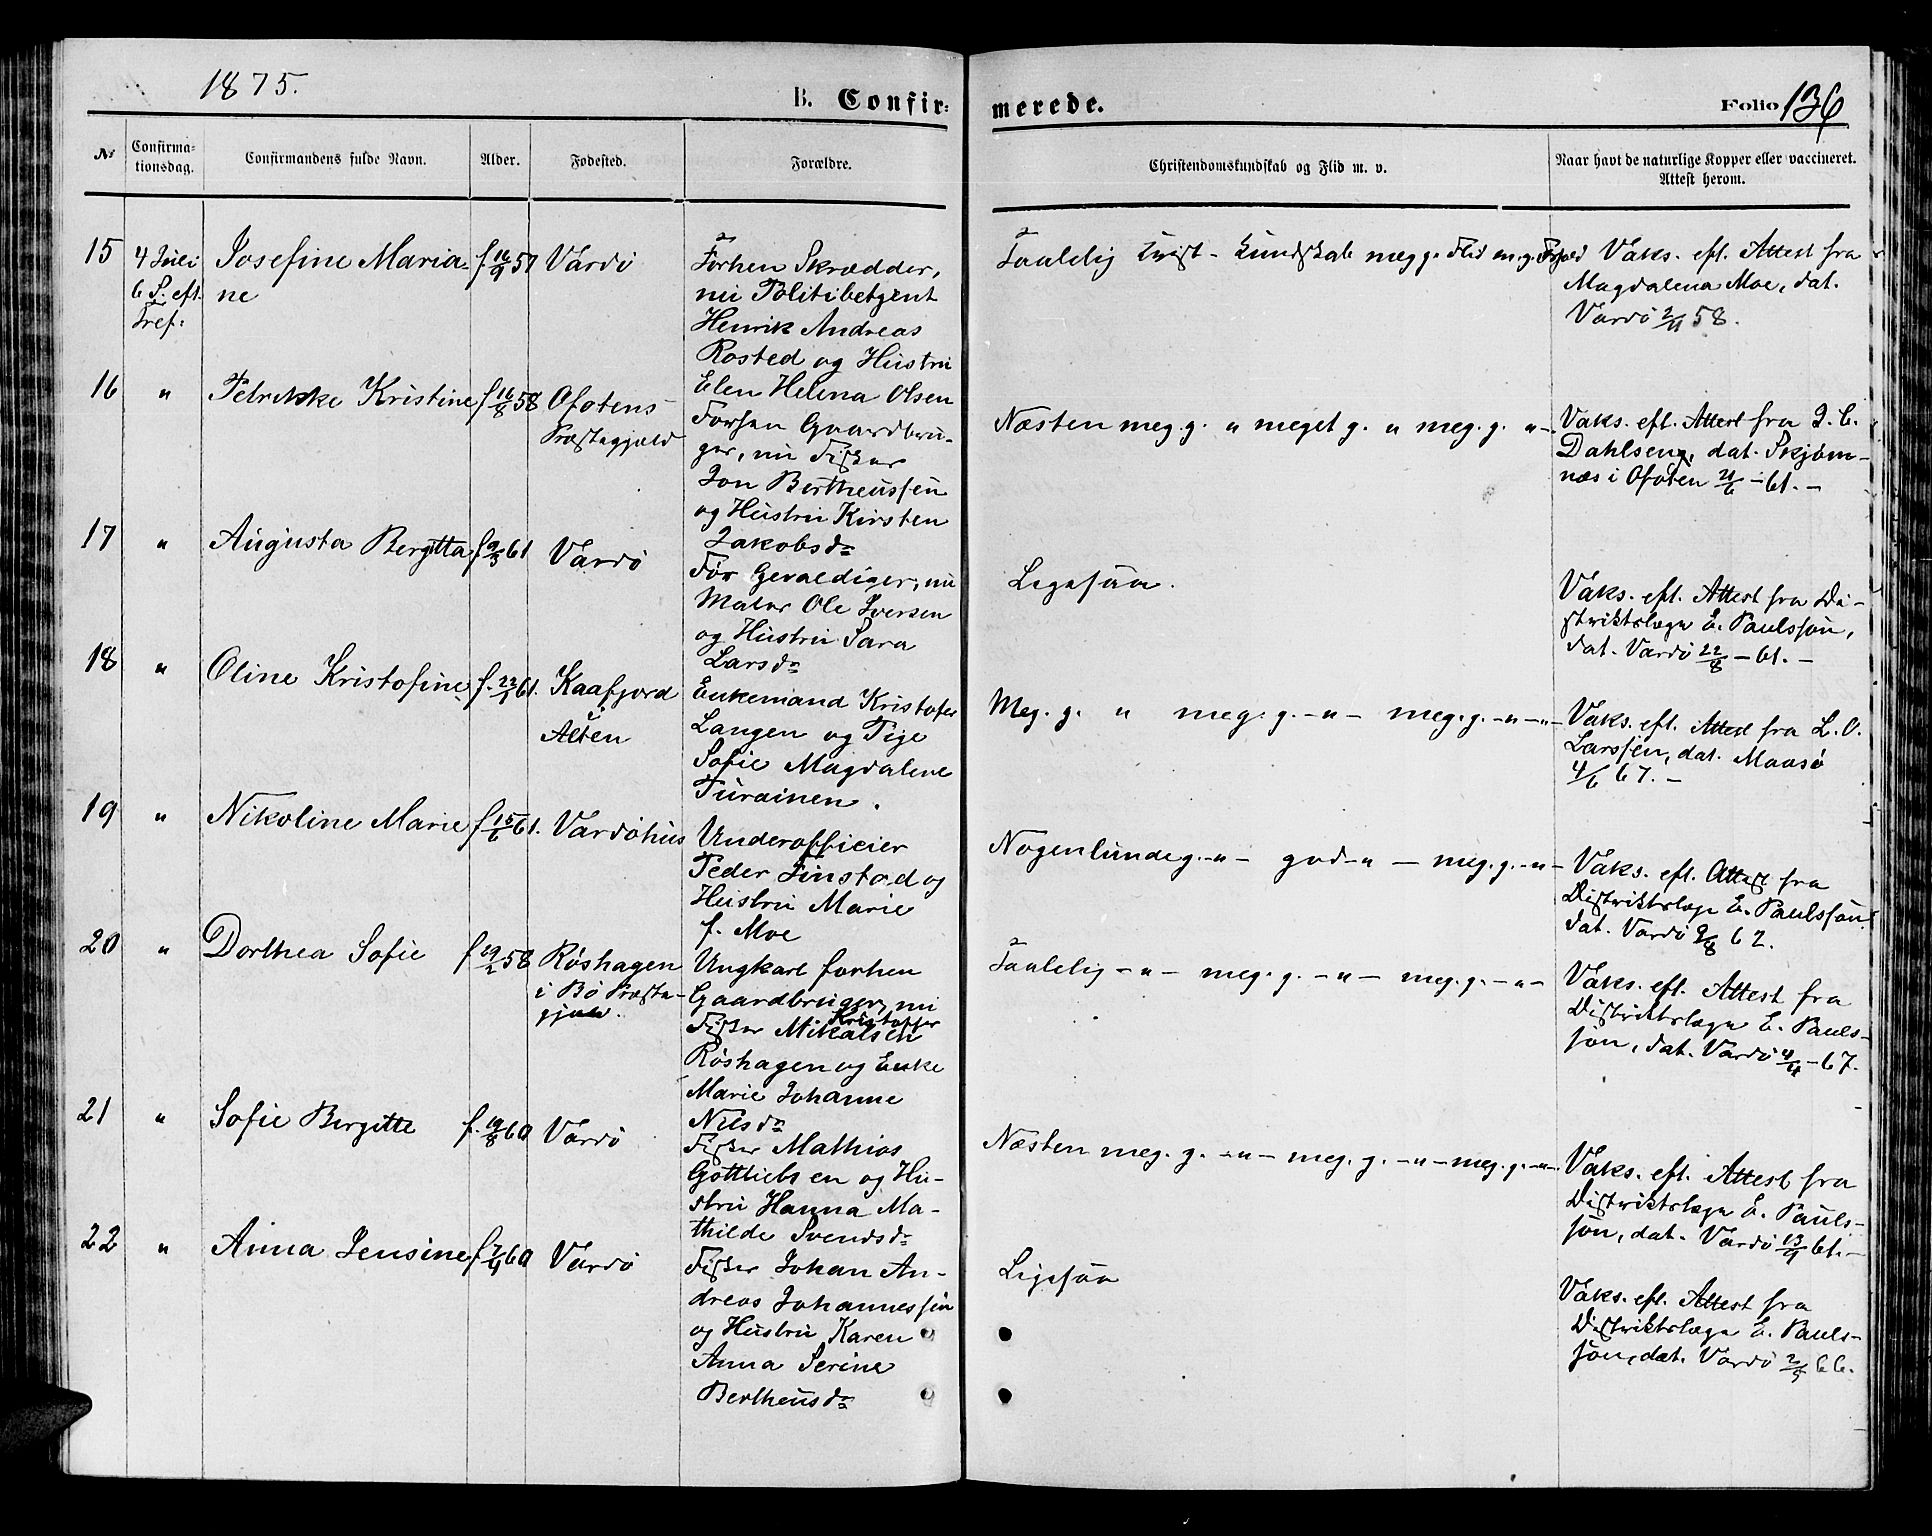 1875.
B. Confirmerede.
Folio 136
No
Confirmationsdag.
Confirmandens fulde Navn.
Alder.
Fødested.
Forældre.
Christendomskundskab og Flid m. v.
Naar havt de naturlige Kopper eller vaccineret. Attest herom.
15
4 Juli
6 S. eft.
Tref:
Josefine Maria-
ne
f 16/9 57
Vardö
Forhen Skrædder,
nu Politibetjent
Henrik Andreas
Rosted og Hustru
Elen Helena Olsen
Taalelig Krist-Kundskab meg g. Flid m. g. Forhold
Vaks. eft. Attest fra
Magdalena Moe, dat.
Vardö 2/11 58.
16
"
Petrikke Kristine
f 16/8 58
Ofotens
Præstegjeld
Forhen Gaardbru-
ger, nu Fisker
Jon Bertheussen
og Hustru Kirsten
Jakobsdr
Næsten meg. g. " meget g. " meg. g. "-
Vaks. eft. Attest fra J. C.
Dahlseng, dat. Skjom-
næs i Ofoten 21/6 -61.-
17
"
Augusta Bergitta
f 9/3 61
Vardö
Før Gevaldiger, nu
Maler Ole Iversen
og Hustru Sara
Larsdr
Ligesaa.
Vaks. eft. Attest fra Di-
striktslæge E. Paulsson,
dat. Vardö 22/8 -61.-
18
"
Oline Kristofine
f. 22/1 61.
Kaafjord
i
Alten
Enkemand Kristofer
Langen og Pige
Sofie Magdalene
Turainen.
Meg. g. " meg. g. -"- meg. g. -"-"-
Vaks. eft. Attest fra L. O.
Larssen, dat. Maasö
4/6 67.-
19
"
Nikoline Marie
f 15/6 61.
Vardöhus
Underofficier
Peder Finstad og
Hustru Marie
f. Moe
Nogenlunde g. -"- god -"- meg. g. -"-
Vaks. eft. Attest fra
Distriktslæge E. Paulsson
dat. Vardö 9/8 62.
20
"
Dorthea Sofie
f 19/2 58
Röshagen
i Bö Præste-
gjeld.
Ungkarl forhen
Gaardbruger, nu
Fisker Kristoffer Mikalsen
Röshagen og Enke
Marie Johanne
Nilsdr
Taalelig -"- meg. g. -"- meg. g. -"-
Vaks. eft. Attest fra
Distriktslæge E. Pauls-
son, dat. Vardö 4/4 -67.
21
"
Sofie Bergitte
f. 19/8 60
Vardö
Fisker Mathias
Gottliebsen og Hu-
stru Hanna Ma-
thilde Svendsdr
Næsten meg. g. -"- meg. g. -"- meg. g. -"-
Vaks. eft. Attest fra
Distriktslæge E. Pauls-
son, dat. Vardö 13/9 61.-
22
"
Anna Jensine
f 7/4 60
Vardö
Fisker Johan An-
dreas Johannessen
og Hustru Karen
Anna Serine
Bertheusdr
Ligesaa
Vaks. eft. Attest fra
Distriktslæge E. Pauls-
son, dat. Vardö 2/5 66.